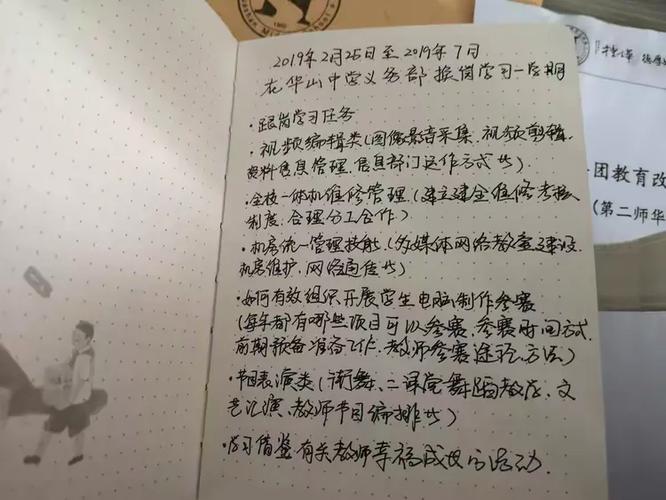 2019年2月25日至2019年7月
在华山中学义务部换岗学习一学期
·跟岗学习任务
·视频编辑类(图像影音采集、视频剪辑、
资料信息管理、信息部门运作方式等)
·全校一体机维修管理(建立建全维修考核
制度、合理分工合作)
·机房统一管理技能(多媒体网络教室建设、
机房维护、网络通信等)
·如何有效组织开展学生电脑制作参赛
(每年都有哪些项目可以参赛、参赛时间方式、
前期预备准备工作、教师参赛途径、方法)
·节目表演类(街舞、二课堂舞蹈教及、文
艺汇演、教师节目编排等)
·学习借鉴有关教师幸福成长的活动.
团教育改
(第二师华